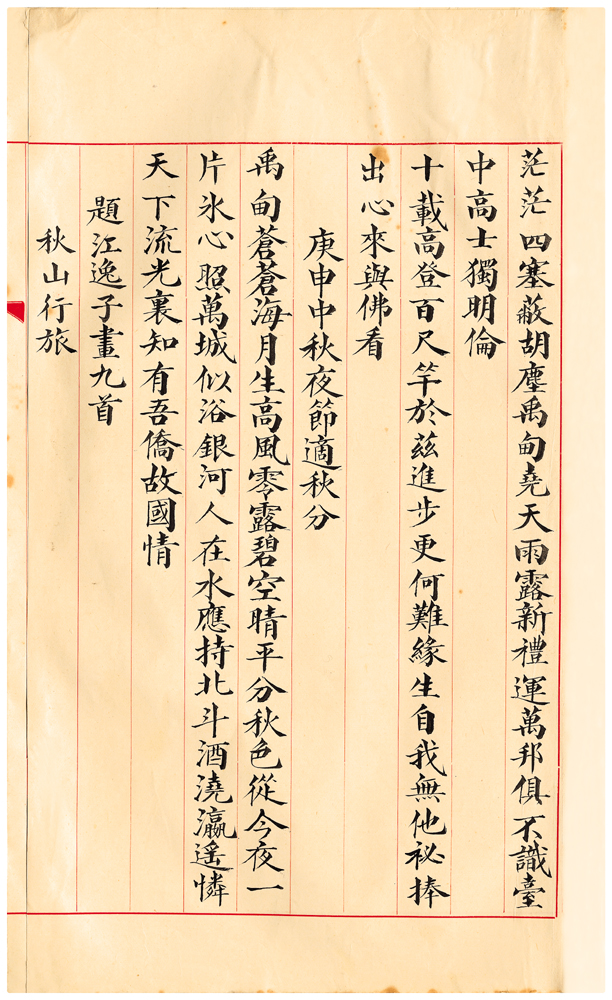 茫茫四塞蔽胡塵禹甸堯天雨露新禮運萬邦俱不識臺
中高士獨明倫
十載高登百尺竿於茲進步更何難緣生自我無他祕捧
出心來與佛看
庚申中秋夜節適秋分
禹甸蒼蒼海月生高風零露碧空晴平分秋色從今夜一
片氷心照萬城似浴銀河人在水應持北斗酒澆瀛遙憐
天下流光裏知有吾僑故國情
題江逸子畫九首
秋山行旅